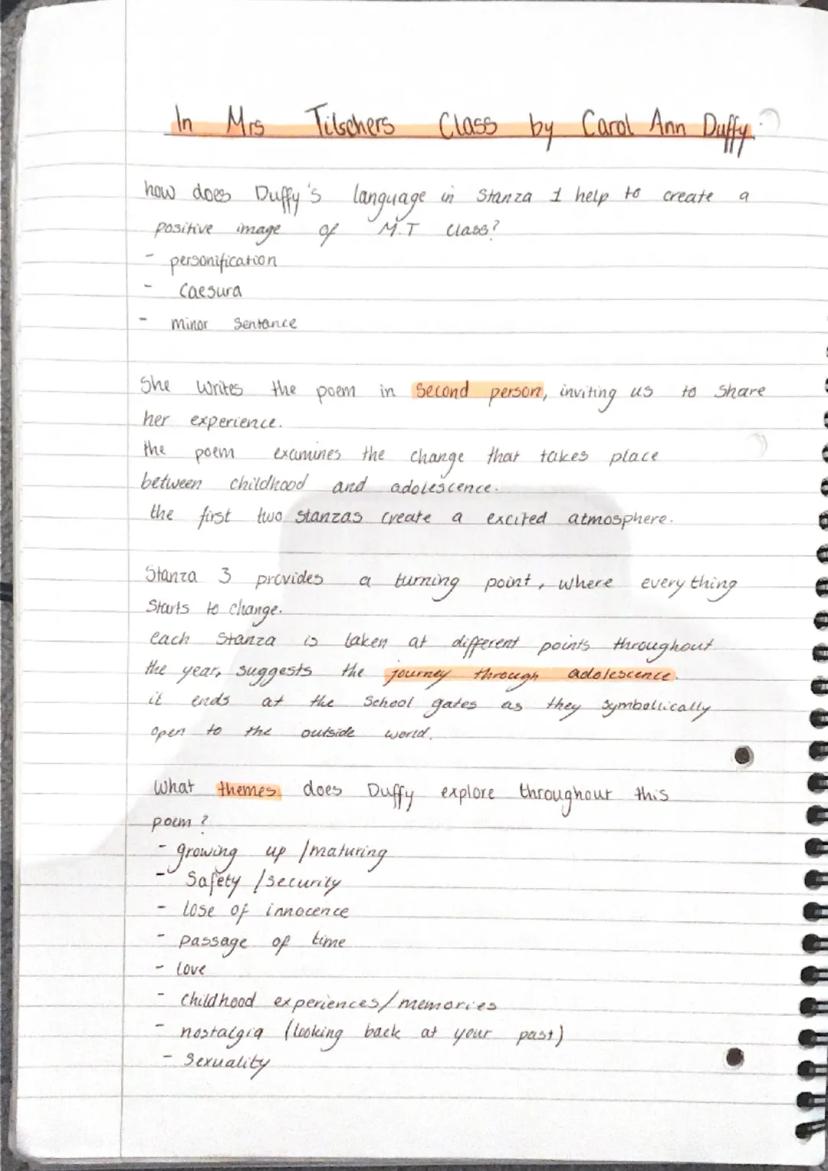 In Mrs Tilschers Class by Carol Ann Duffy.
how does Duffy's language in Stanza 1 help to create a
positive image of M.T class?
- personification
- Caesura
- minor Sentance
She writes the poem in Second person, inviting us to share
her experience.
the poem examines the change that takes place
between childhood and adolescence.
the first two stanzas create a excited atmosphere.
Stanza 3 provides a turning point, where everything
starts to change.
each Stanza is taken at different points throughout
the year, suggests the journey through adolescence.
it ends at the School gates as they symbollically
open to the outside world.
What themes does Duffy explore throughout this
poem?
- growing up /maturing
- Safety /security
- lose of innocence
- passage of time
- love
- childhood experiences/memories
- nostalgia (looking back at your past)
- Sexuality